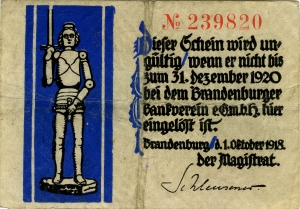 № 239820
Dieser Schein wird un-
gültig, wenn er nicht bis
zum 31. Dezember 1920
bei dem Brandenburger
Bankverein e.G.m.b.H. hier
eingelöst ist.
Brandenburg, d. 1. Oktober 1918.
der Magistrat.